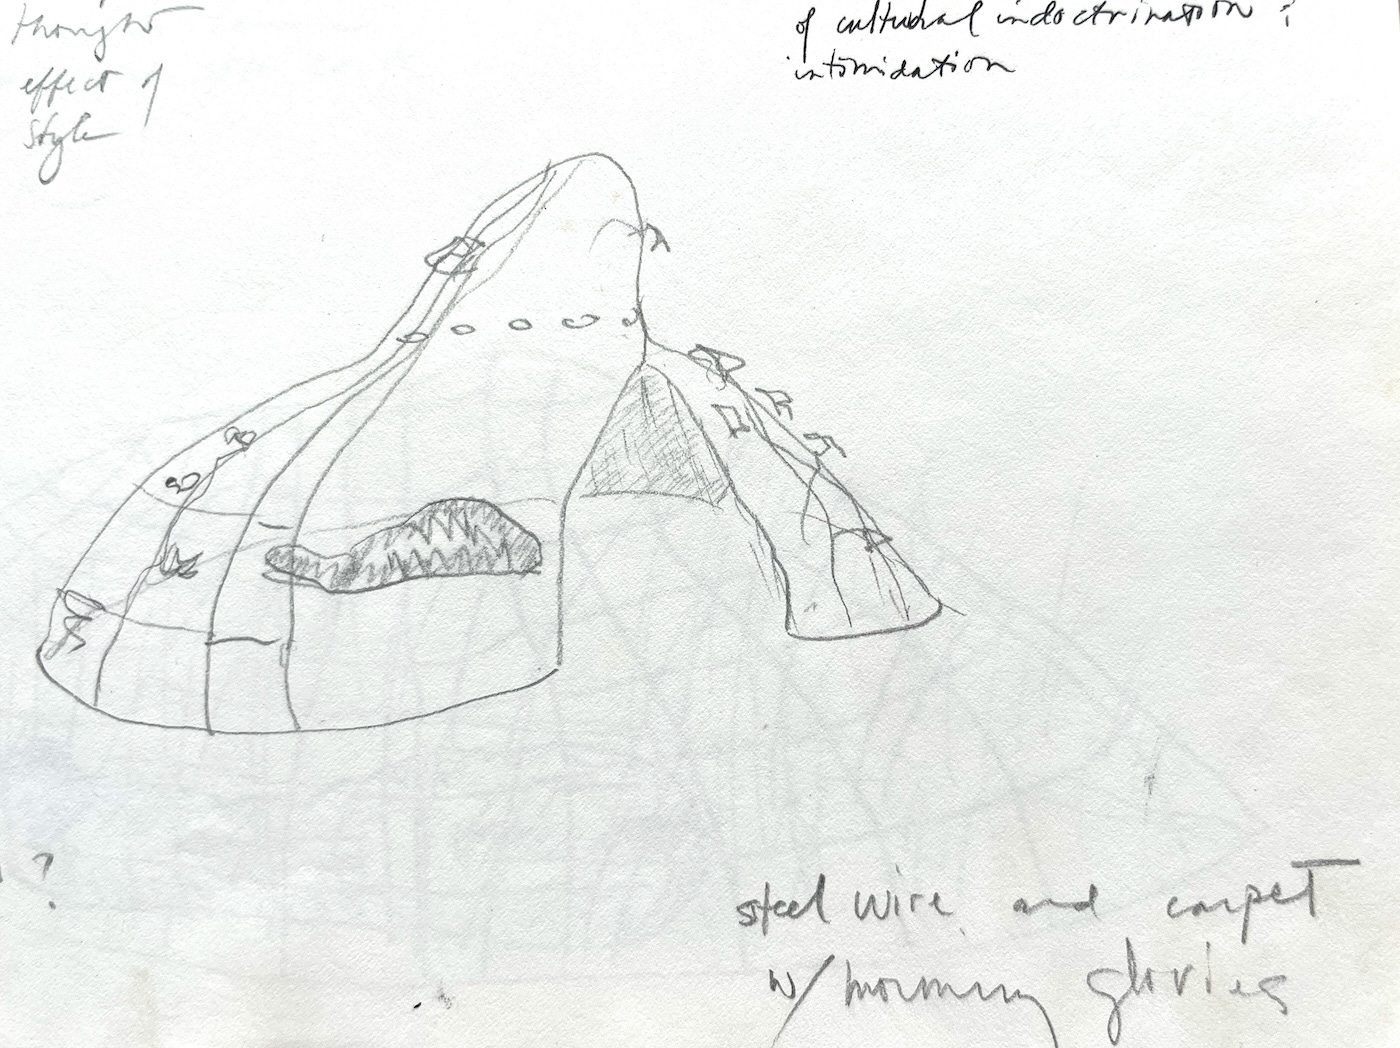 thought
effect of
style
of cultural indoctrination ?
intimidation
?
steel wire and carpet
w/ morning glories